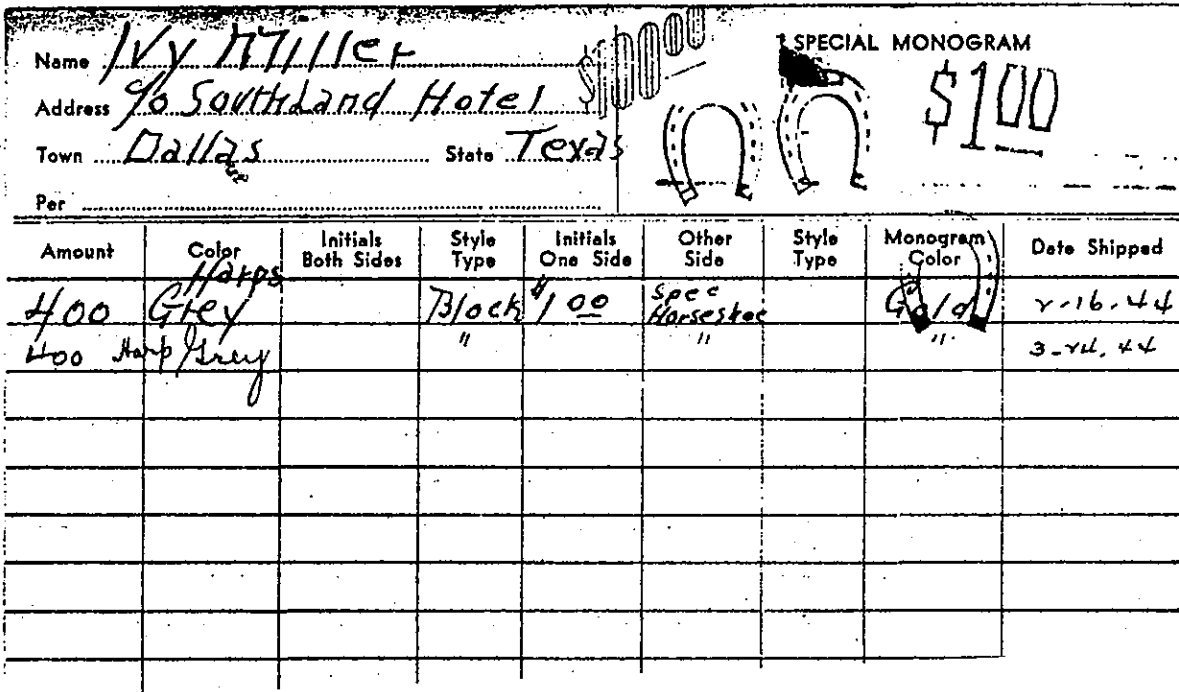 Name Ivy Miller
Address c/o Southland Hotel
Town Dallas State Texas
Per
SPECIAL MONOGRAM
$1.00
Amount Color Initials Both Sides Style Type Initials One Side Other Side Style Type Monogram Color Date Shipped
Harps
400 Grey Block $1.00 Spec Horseshoe Gold 2-16-44
400 Harp Grey " " " 3-24-44